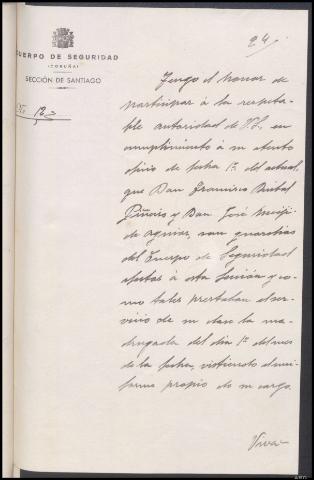 CUERPO DE SEGURIDAD
(CORUÑA)
SECCIÓN DE SANTIAGO
24
Tengo el honor de
participar á la respeta-
ble autoridad de V.S., en
cumplimiento á su atento
oficio de fecha 1º del actual,
que Don Francisco
Piñeiro y Don José
de Aguiar, son guardias
del Cuerpo de Seguridad
afectos á esta Sección y co-
mo tales prestaban el ser-
vicio de su clase la ma-
drugada del día 1º del mes
de la fecha, vistiendo el uni-
forme propio de su cargo.
Viva